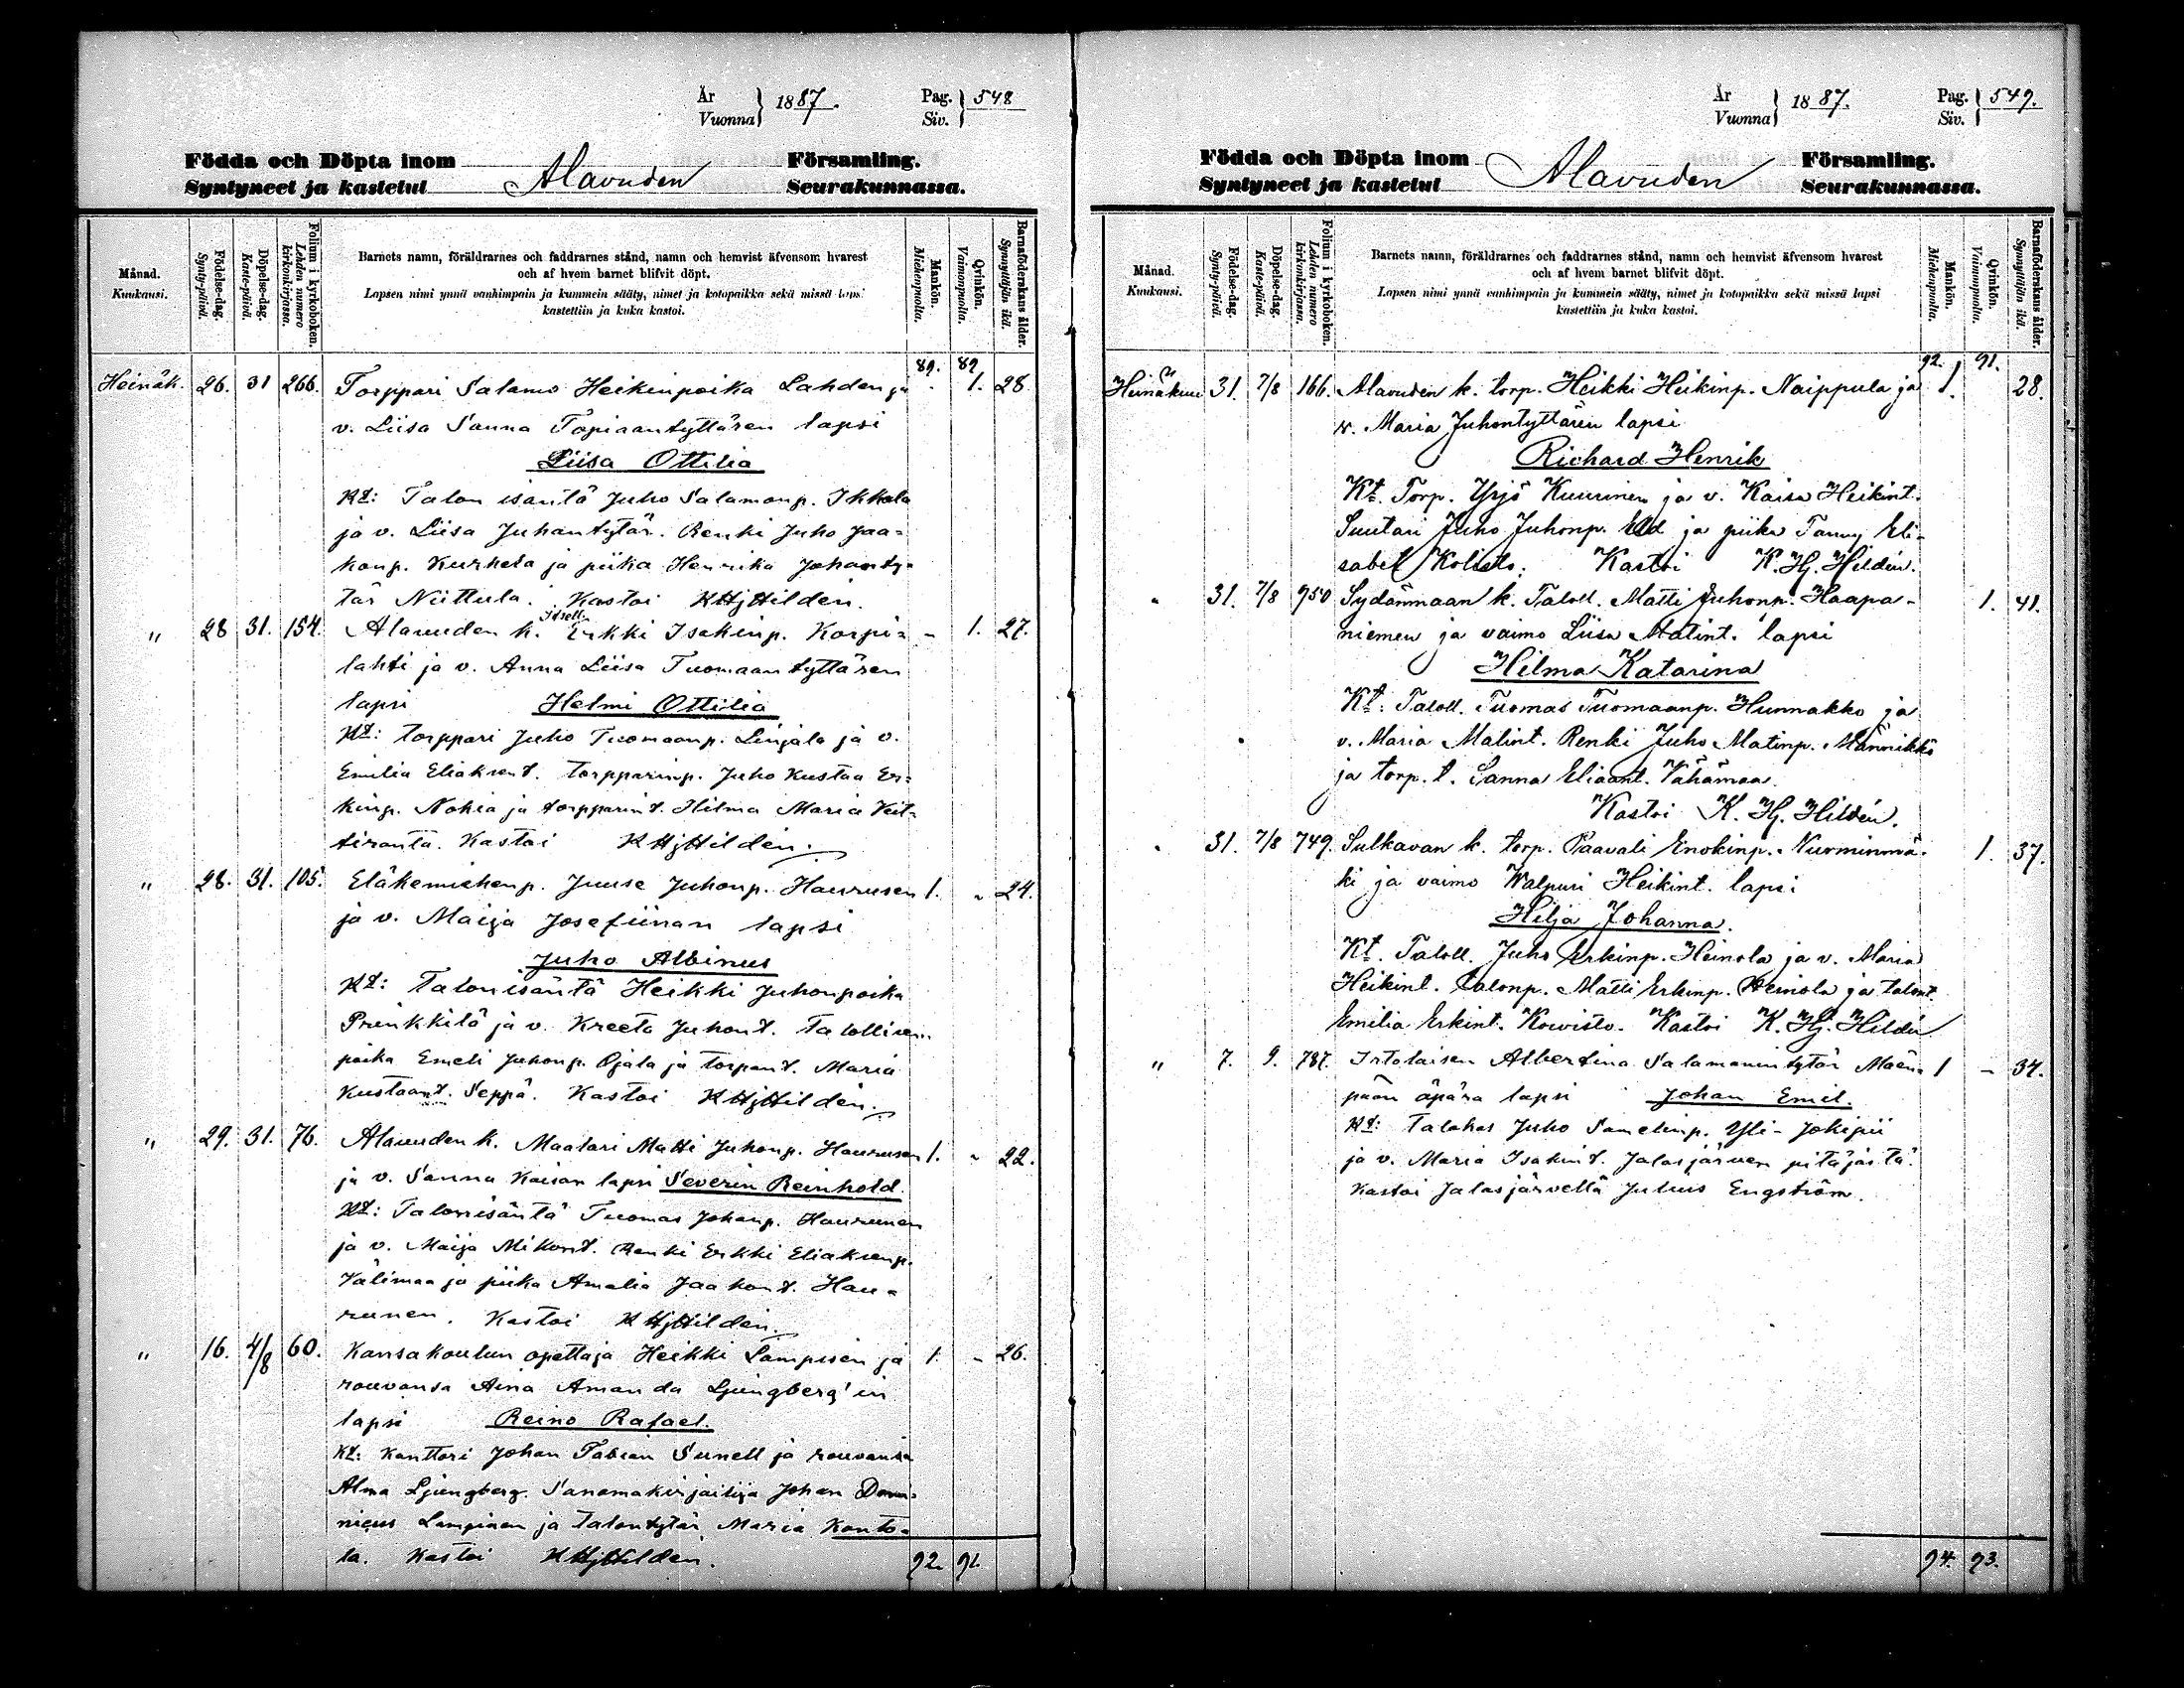 År
Vuonna } 1887.
Pag.
Siv. } 548
Födda och Döpta inom Församling.
Syntyneet ja kastetut Alavuden Seurakunnassa.
Månad. Kuukausi.
Födelse-dag. Synty-päivä.
Döpelse-dag. Kaste-päivä.
Folium i kyrkoboken. Lehden numero kirkonkirjassa.
Barnets namn, föräldrarnes och faddrarnes stånd, namn och hemvist äfvensom hvarest
och af hvem barnet blifvit döpt.
Lapsen nimi ynnä vanhimpain ja kummein sääty, nimet ja kotopaikka sekä missä lapsi
kastettiin ja kuka kastoi.
Mankön. Miehenpuolta.
Qvinkön. Vaimonpuolta.
Barnaföderskans ålder. Synnyttäjän ikä.
89. 89
Heinäk. 26. 31 266. Torppari Salamo Heikinpoika Lahden ja - 1. 28
v. Liisa Sanna Topiaantyttären lapsi
Liisa Ottilia
Kt: Talon isäntä Juho Salamonp. Ikkala
ja v. Liisa Juhantytär. Renki Juho Jaa=
konp. Kurhela ja piika Henrika Johanty=
tär Niittula. Kastoi KHjHildén.
" 28 31. 154. Alavuden k. Itsell. Erkki Isakinp. Korpi= - 1. 27.
lahti ja v. Anna Liisa Tuomaantyttären
lapsi Helmi Ottilia
Kt: torppari Juho Tuomaanp. Linjala ja v.
Emilia Eliakzent. torpparinp. Juho Kustaa Er=
kinp. Nokia ja torpparint. Hilma Maria
Kastoi KHjHildén.
" 28. 31. 105. Eläkemiehenp. Juuse Juhonp. Haurusen 1. - 24.
ja v. Maija Josefiinan lapsi
Juho Albinus
Kt: Talonisäntä Heikki Juhonpoika
Prenkkilä ja v. Kreeta Juhont. Talollisen
poika Emeli Juhonp. Ojala ja torpant. Maria
Kustaant. Seppä. Kastoi KHjHildén.
" 29. 31. 76. Alavuden k. Maalari Matti Juhonp. Haurusen 1. - 22.
ja v. Sanna Kaisan lapsi Severin Reinhold.
Kt: Talonisäntä Tuomas Johanp. Haurunen
ja v. Maija Mikont. Renki Erkki Eliaksenp.
Välimaa ja piika Amalia Jaakont. Hau=
runen. Kastoi KHjHildén.
" 16. 4/8 60. Kansakoulun opettaja Heikki Lampisen ja 1. - 26.
rouvansa Aina Amanda Ljungberg'in
lapsi Reino Rafael.
Kt: Kanttori Johan Fabian Sunell ja rouvansa
Alma Ljungberg. Sanomakirjailija Johan Dom=
nicus Lampinen ja talontytär Maria Konto=
la. Kastoi KHjHildén. 92 91
År
Vuonna } 1887.
Pag.
Siv. } 549.
Födda och Döpta inom Församling.
Syntyneet ja kastetut Alavuden Seurakunnassa.
Månad. Kuukausi.
Födelse-dag. Synty-päivä.
Döpelse-dag. Kaste-päivä.
Folium i kyrkoboken. Lehden numero kirkonkirjassa.
Barnets namn, föräldrarnes och faddrarnes stånd, namn och hemvist äfvensom hvarest
och af hvem barnet blifvit döpt.
Lapsen nimi ynnä vanhimpain ja kummein sääty, nimet ja kotopaikka sekä missä lapsi
kastettiin ja kuka kastoi.
Mankön. Miehenpuolta.
Qvinkön. Vaimonpuolta.
Barnaföderskans ålder. Synnyttäjän ikä.
92. 91.
Heinäkuu 31. 7/8 166. Alavuden k. torp. Heikki Heikinp. Naippula ja 1. 28.
v. Maria Juhontyttären lapsi
Richard Henrik
Kt. Torp. Yrjö Kuurinen ja v. Kaisa Heikint.
Suutari Juho Juhonp. Uld ja piika Fanny Eli-
sabet Kolisto. Kastoi K. Hj. Hildén.
" 31. 7/8 950 Sydänmaan k. Taloll. Matti Juhonp. Haapa- 1. 41.
niemen ja vaimo Liisa Matint. lapsi
Hilma Katarina
Kt. Taloll. Tuomas Tuomaanp. Hunnakko ja
v. Maria Matint. Renki Juho Matinp. Männikkö
ja torp. t. Sanna Eliaant. Vähämaa.
Kastoi K. Hj. Hildén.
" 31. 7/8 749. Sulkavan k. torp. Paavali Enokinp. Nurminmä- 1. 37.
ki ja vaimo Walpuri Heikint. lapsi
Hilja Johanna.
Kt. Taloll. Juho Erkinp. Heinola ja v. Maria
Heikint. talonp. Matti Erkinp. Heinola ja talont.
Emilia Erkint. Kowisto. Kastoi K. Hj. Hildén
" 7. 9. 787. Irtolaisen Albertina Salamonintytär Mäen= 1 - 34.
pään äpära lapsi Johan Emil.
Kt: Talokas Juho Samelinp. Yli-Jokipii
ja v. Maria Isakint. Jalasjärven pitäjästä.
Kastoi Jalasjärvellä Julius Engström.
94. 93.